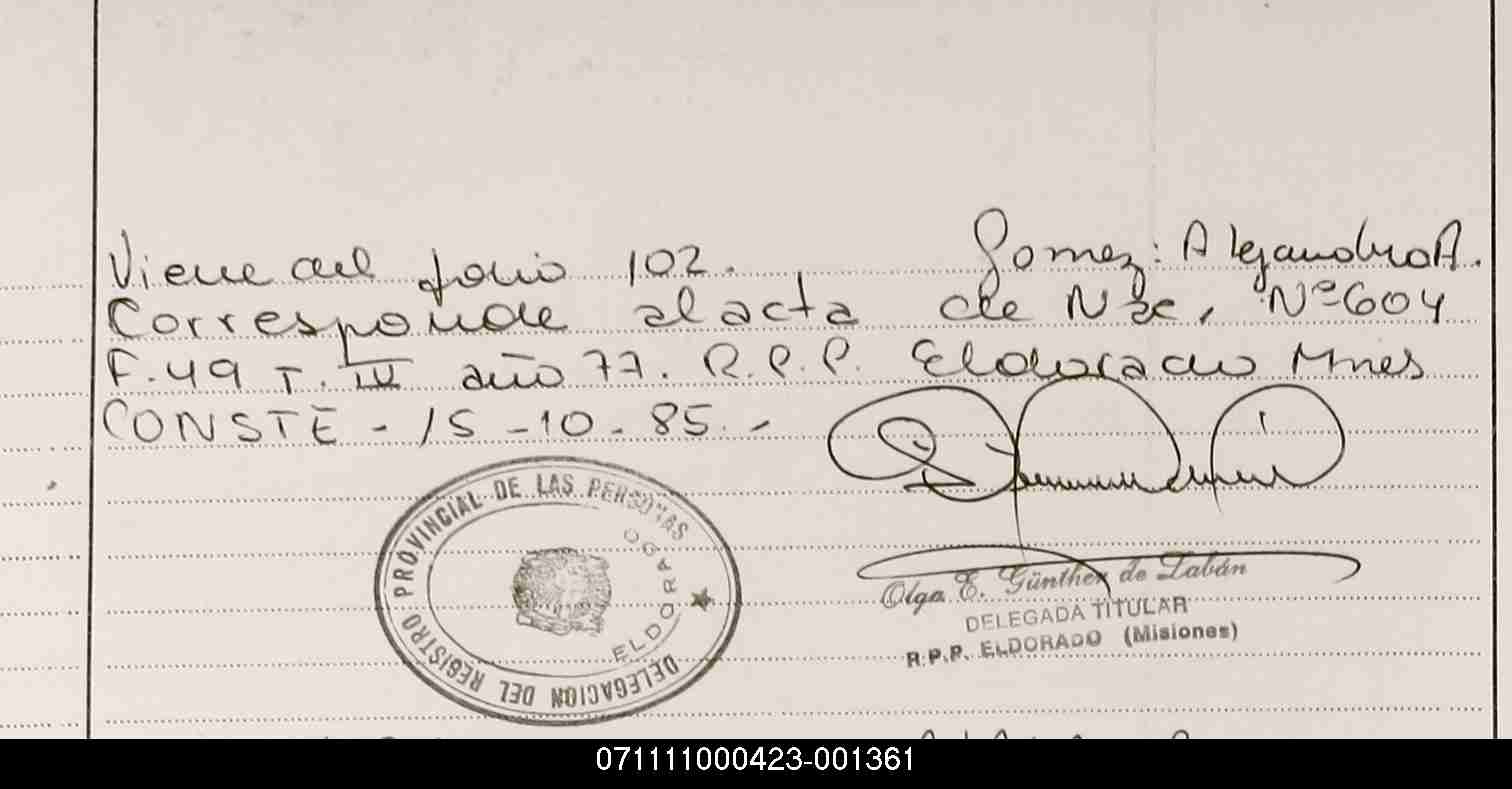 Viene del folio 102. Gomez: Alejandro A.
Corresponde al acta de Nac. Nº 604
F. 49 T. IV año 77. R.P.P. Eldorado Mnes
CONSTE - 15 - 10 - 85. -
DELEGACION DEL REGISTRO PROVINCIAL DE LAS PERSONAS
ELDORADO
Olga E. Günther de Labán
DELEGADA TITULAR
R.P.P. ELDORADO (Misiones)
071111000423-001361